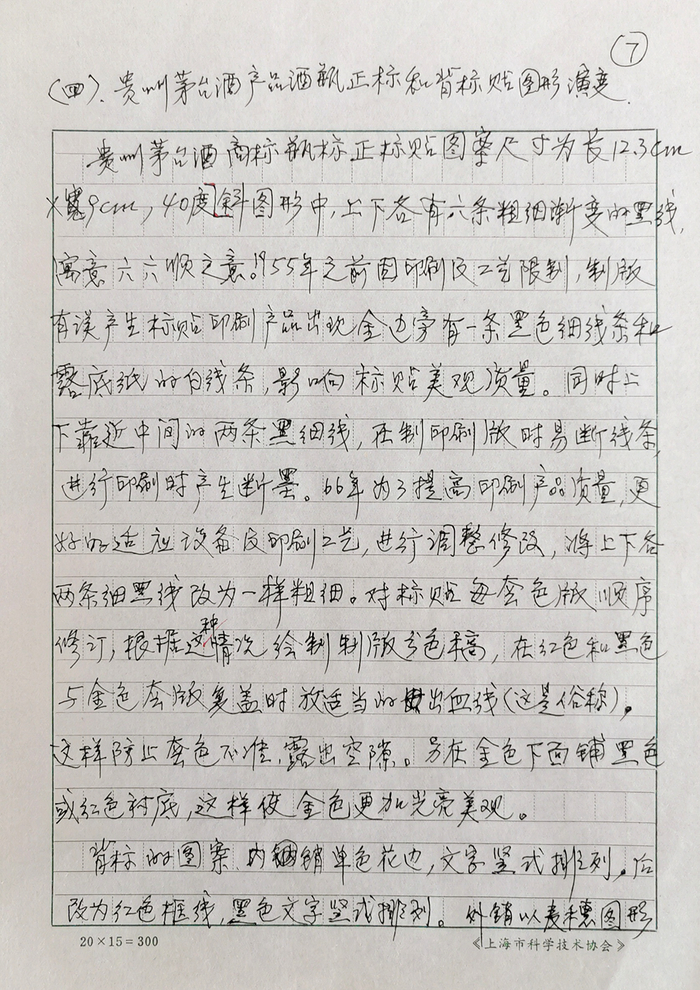 7
(四)、贵州茅台酒产品酒瓶正标和背标贴图形演变.
贵州茅台酒商标瓶标正标贴图案尺寸为长12.3cm
×宽9cm,40度斜图形中,上下各有六条粗细渐变的黑线,
寓意六六顺之意!55年之前因印刷及工艺限制,制版
有误产生标贴印刷产品出现金边旁有一条黑色细线条和
露底纸的白线条,影响标贴美观质量。同时上
下靠近中间的两条黑细线,在制印刷版时易断线条,
进行印刷时产生断墨。66年为了提高印刷产品质量,更
好的适应设备及印刷工艺,进行调整修改,将上下各
两条细黑线改为一样粗细。对标贴每套色版顺序
修订,根据这种情况绘制制版分色稿,在红色和黑色
与金色套版复盖时放适当的出血线(这是俗称)。
这样防止套色不准,露出空隙。另在金色下面铺黑色
或红色衬底,这样使金色更加光亮美观。
背标的图案内销单色花边,文字竖式排列。后
改为红色框线,黑色文字竖式排列。外销以麦穗图形
20×15=300
《上海市科学技术协会》